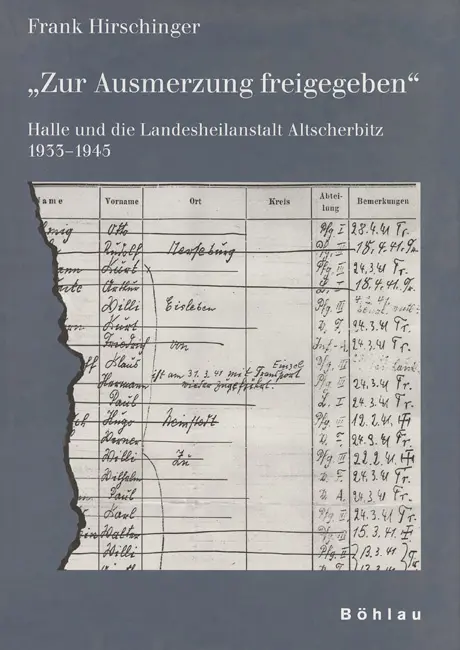 Frank Hirschinger
„Zur Ausmerzung freigegeben“
Halle und die Landesheilanstalt Altscherbitz
1933–1945
ame Vorname Ort Kreis Abtei-lung Bemerkungen
Otto Pfg I 28.4.41 Tr.
Rudolf Merseburg 18.4.41.
Kurt Pfg III 24.3.41 Tr.
Arthur L. I 18.4.41.
Willi Eisleben Pfg III
Kurt 24.3.41 Tr.
Friedrich von 24.3.41 Tr.
Klaus Einzel
ist am 31.3.41 mit Transport
Hermann wieder zugeführt. Pfg II 24.3.41 Tr.
Paul L. I 24.3.41 Tr.
Hugo Pfg III 12.2.41
Werner 24.3.41 Tr.
Willi Zü Pfg III 22.2.41
Wilhelm 24.3.41 Tr.
Paul 24.3.41 Tr.
Karl Pfg II 24.3.41 Tr.
Walter Pfg III 15.3.41.
Willi Pfg II 13.3.41
13.3.41
Böhlau